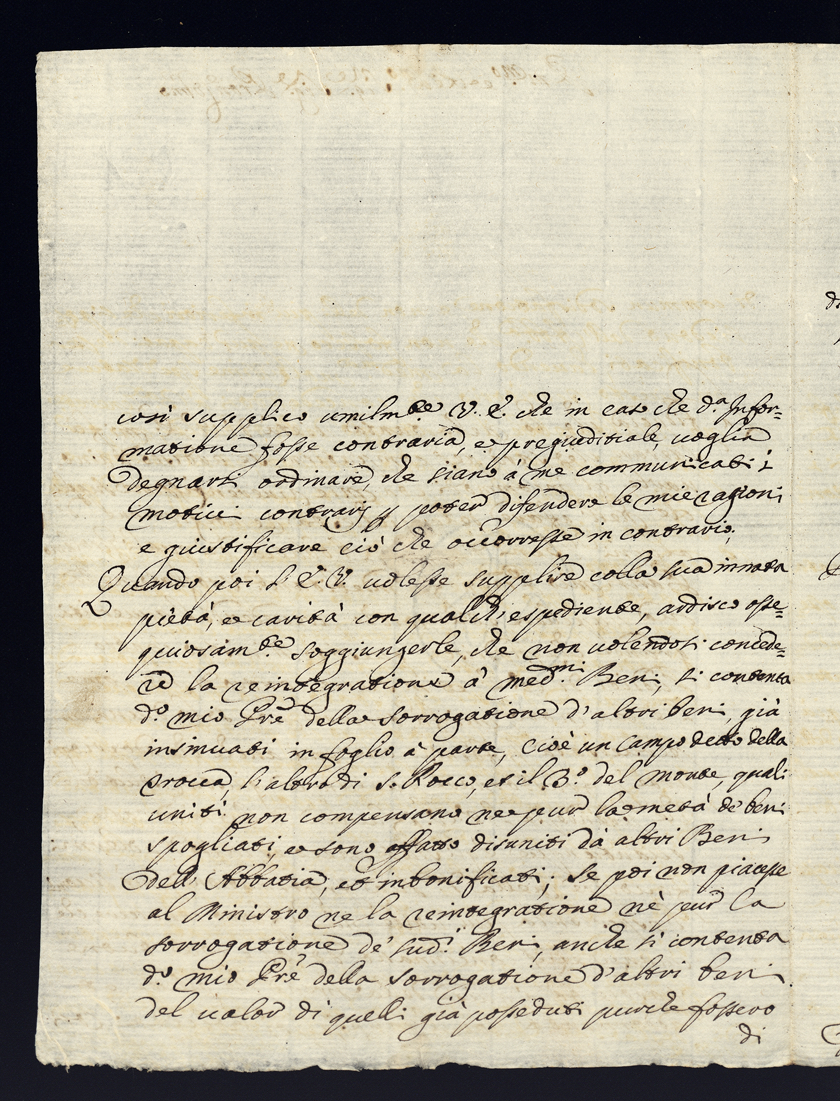 così supplico umilm.te V. E. che in caso che d.a Infor=
matione fosse contraria, e pregiuditiale, voglia
degnarsi ordinare, che siano à me communicati i
motivi contrarij p poter difendere le mie ragioni
e giustificare ciò che occorresse in contrario,
Quando poi l'E. V. volesse supplire colla sua innata
pietà, e carità con qualch'espediente, ardisco osse=
quiosam.te soggiungerle, che non volendosi concede=
re la reintegratione à med.mi Beni, si contenta
d.o mio Pre della sorrogatione d'altri beni già
insinuati in foglio à parte, cioè un Campo detto della
Crocca, l'altro di S. Rocco, et il 3.o del monte, quali
uniti non compensano ne pur la metà de beni
spogliati, e sono affatto disuniti dà altri Beni
dell'Abbatia, et inbonificati; Se poi non piacesse
al Ministro ne la reintegratione nè pur la
sorrogatione de' sud.i Beni, anche si contenta
d.o mio Pre della sorrogatione d'altri beni
del valor di quelli già posseduti purche fossero
di